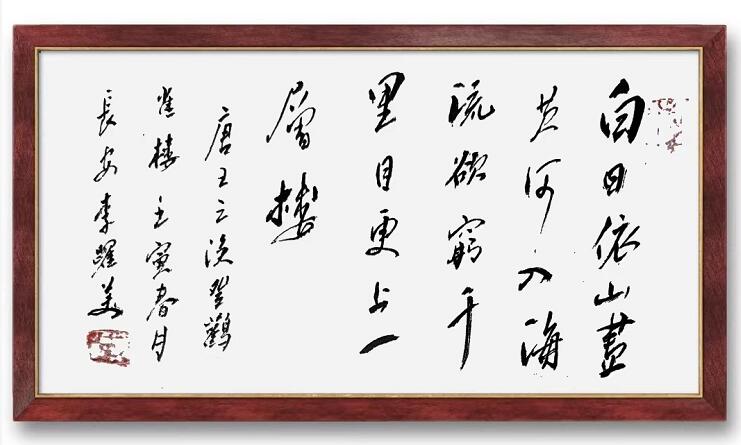 白日依山盡
黄河入海
流欲窮千
里目更上一
層樓
唐王之渙登鸛
雀樓壬寅春月
長安李耀美